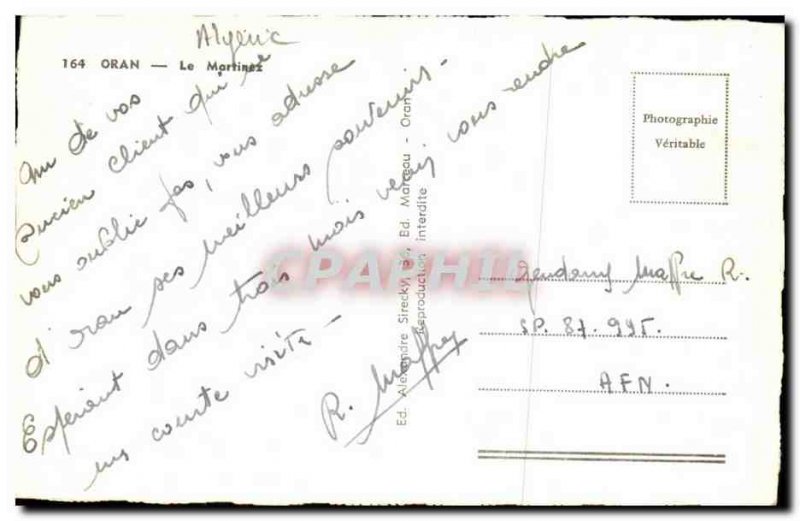 Algérie
164 ORAN — Le Martinez
Un de vos
ancien client qui ne
vous oublie pas, vous adresse
d'oran ses meilleurs souvenirs.
Espérant dans trois mois venir vous rendre
une courte visite —
R. Maffre
Ed. Alexandre Sirecky, Bd. Marceau - Oran
Reproduction interdite
Photographie
Véritable
Gendarme Maffre R.
SP. 87.995.
AFN.
CPARAMA